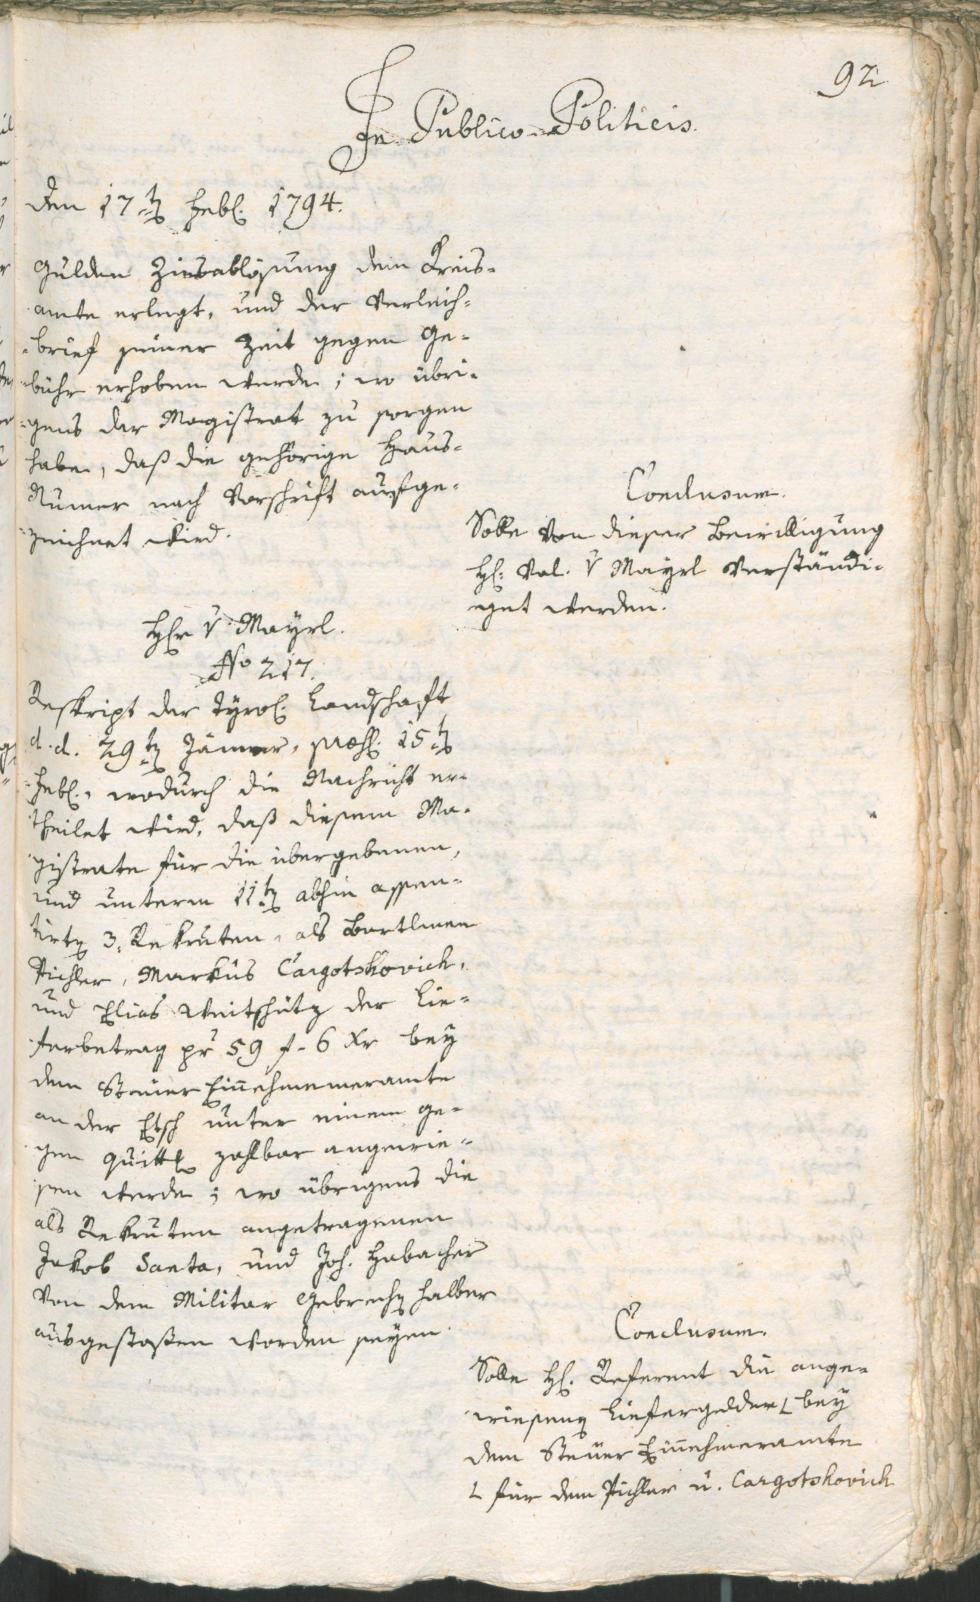 92.
In Publico-Politicis.
den 17ten Febl. 1794.
Gulden Zinsablösung dem Kreis-
amte erlegt, und der Verleih-
brief seiner Zeit gegen Ge-
bühr erhoben werde; wo übri-
gens der Magistrat zu sorgen
habe, daß die gehörige Haus-
Numer nach Vorschrift aufge-
zeichnet wird.
Conclusum.
Solle von dieser Bewilligung
H. Val. v Mayrl verständi-
get werden.
Hr v. Mayrl.
No 217.
Reskript der Tyrol. Landschaft
d. d. 29ten Jänner, præs. 15ten
Febl., wodurch die Nachricht er-
theilet wird, daß diesem Ma-
gistrate für die übergebenen,
und unterm 11ten abhin assen-
tirten 3. Rekruten, als Bartlmee
Pichler, Markus Cargotskovich,
und Elias Weitschütz der Lie-
ferbetrag pr 59 f. 6 Xr bey
dem Steuer Einnehmeramte
an der Etsch unter einem ge-
gen Quittg zahlbar angewie-
sen werde; wo übrigens die
als Rekruten angetragenen
Jakob Santa, und Joh. Habacher
von dem Militar Gebrechen halber
ausgestoßen worden seyen.
Conclusum.
Solle H. Referent die ange-
wiesenen Liefergelder L bey
dem Steuer Einnehmeramte
L für dem Pichler u. Cargotskovich